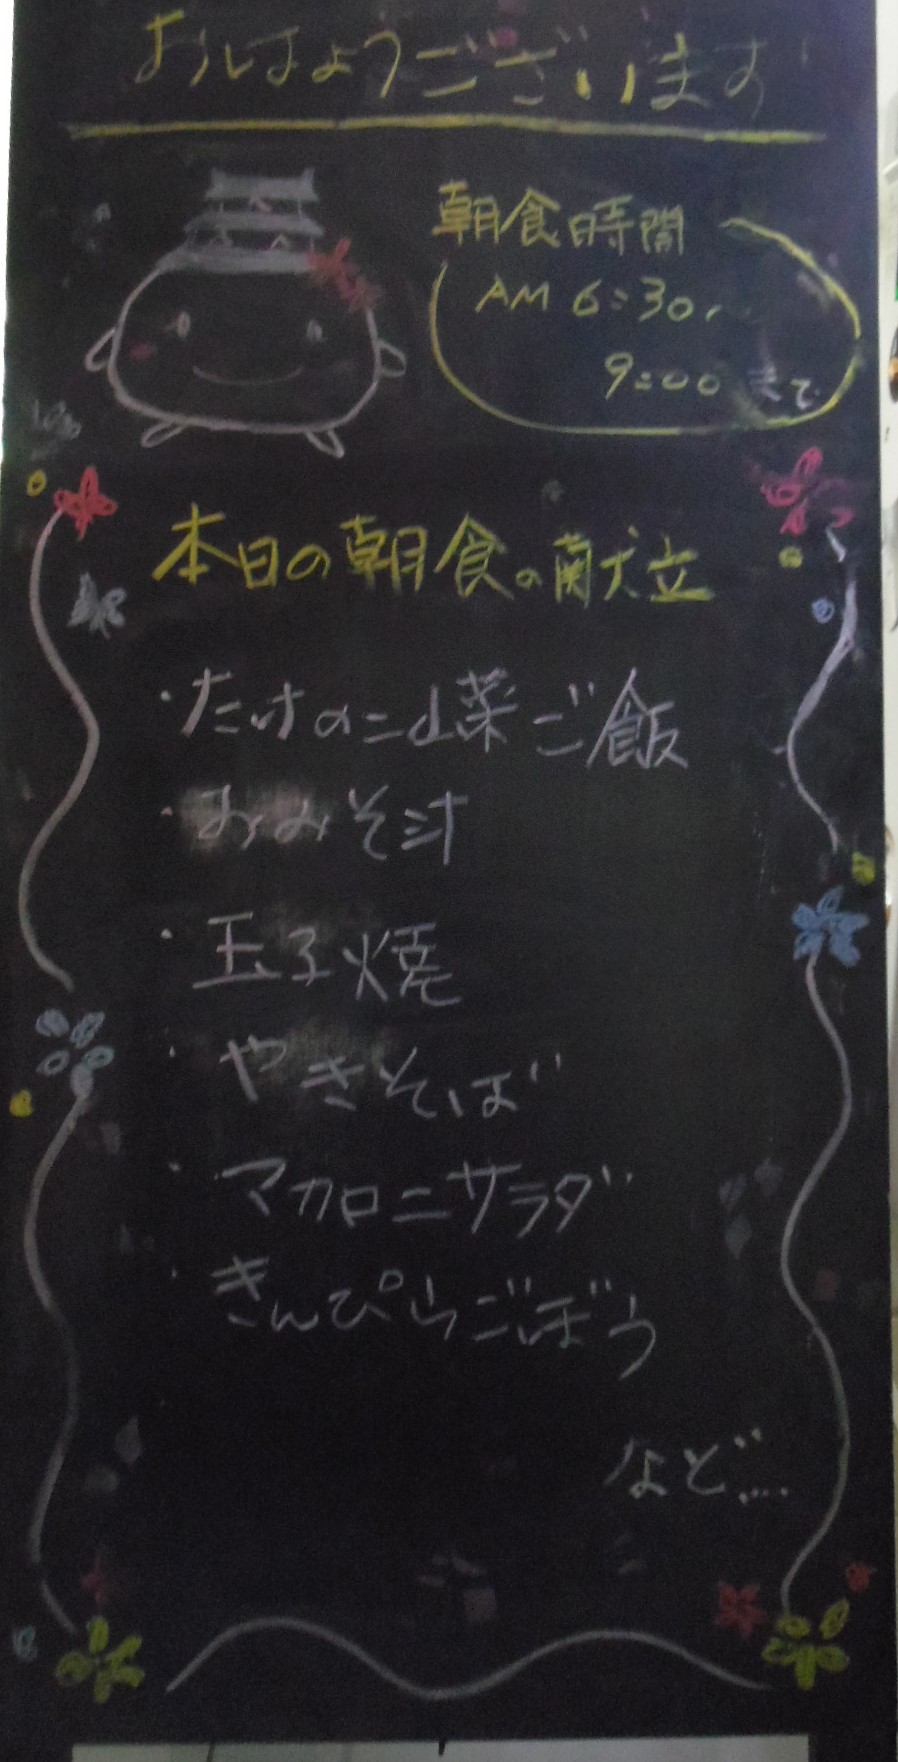 おはようございます
朝食時間
AM 6:30〜
9:00 まで
本日の朝食の献立
・たけのこ山菜ご飯
・おみそ汁
・玉子焼
・やきそば
・マカロニサラダ
・きんぴらごぼう
など....